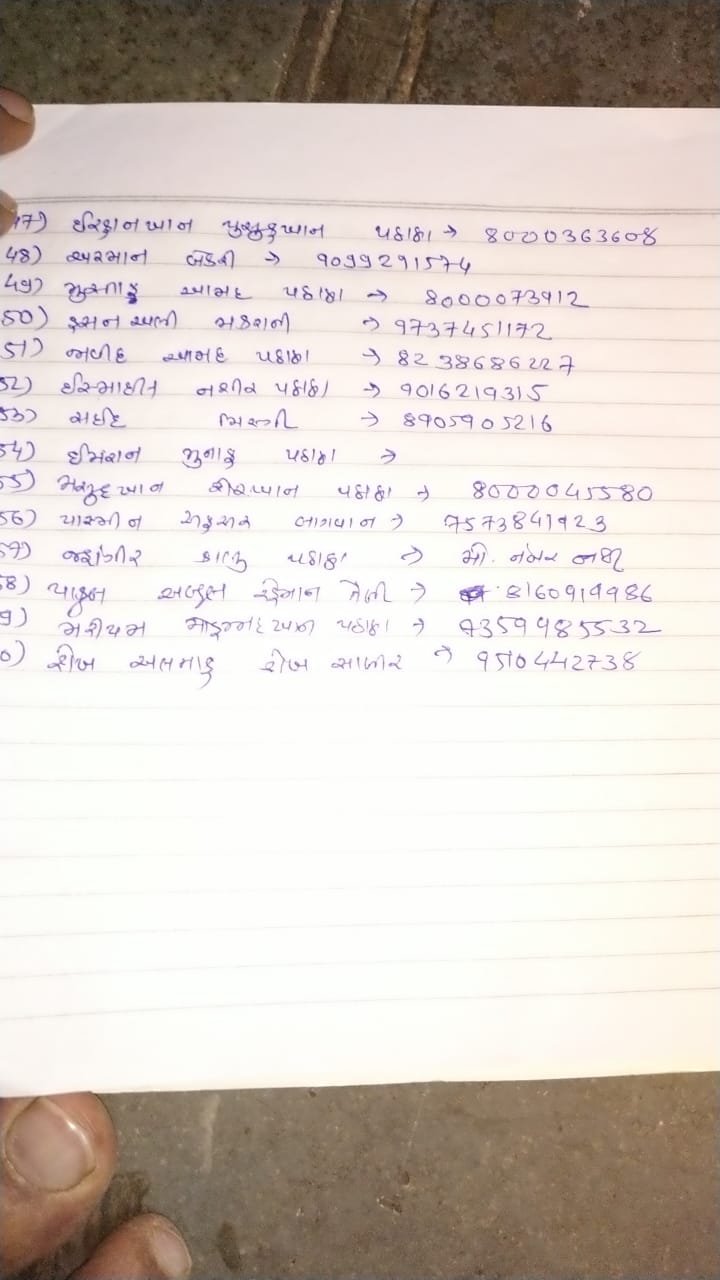 47) ઈરફાનખાન યુસુફખાન પઠાણ → 8000363608
48) અરમાન બેકરી → 9099291574
49) મુસ્તાક આમદ પઠાણ → 8000073912
50) હસનઅલી મકરાની → 9737451172
51) જાવીદ આમદ પઠાણ → 8238686227
52) ઈસ્માઈલ નશીર પઠાણ → 9016219315
53) સઈદ મિસ્ત્રી → 8905905216
54) ઈમરાન મુનાફ પઠાણ →
55) મહમુદખાન શેરખાન પઠાણ → 8000045580
56) યાસ્મીન બાગવાન → 7573841923
57) જહાંગીર કાલુ પઠાણ → મો. નંબર નથી
58) અબ્દુલ રહેમાન તેલી → 8160919986
9) મરીયમ પઠાણ → 7359985532
0) શેખ અલ્તાફ શેખ સાબીર → 9510442738